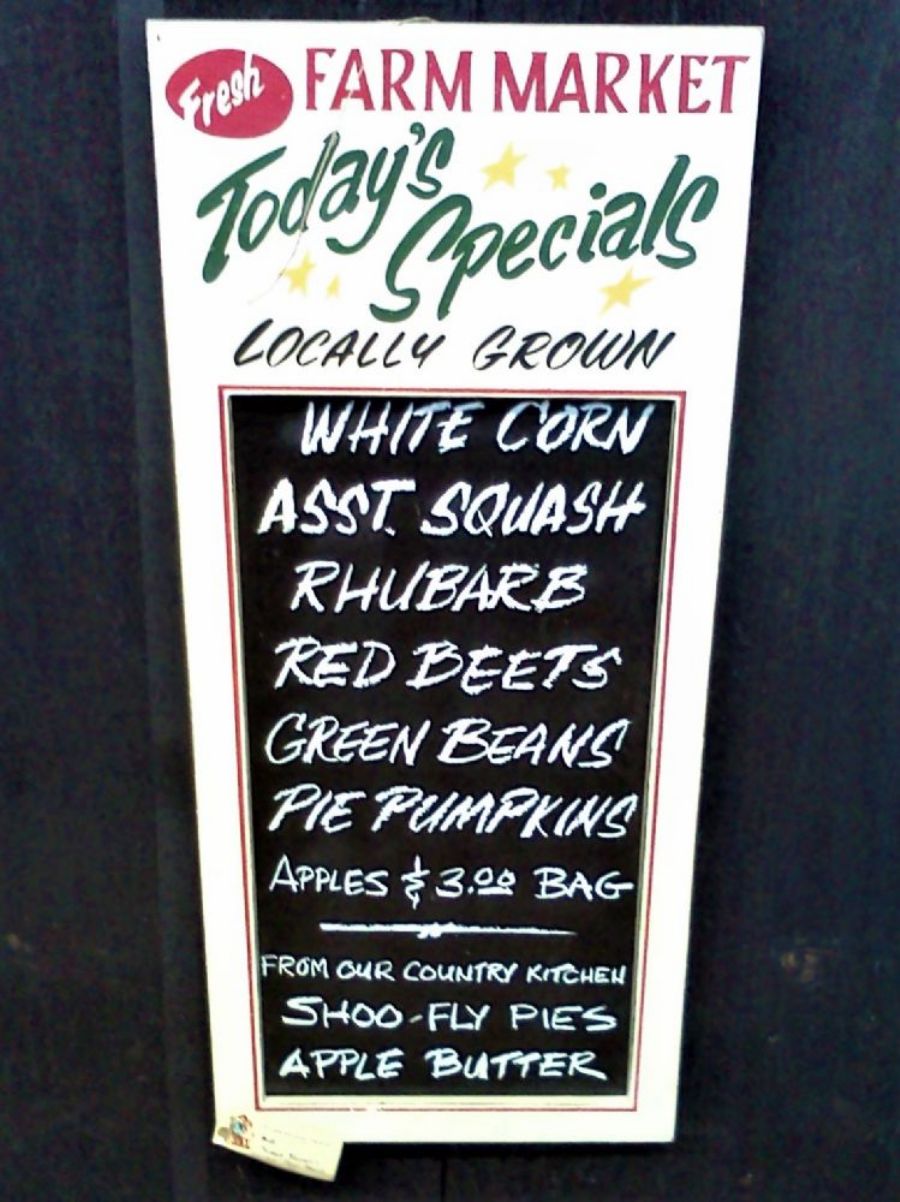 Fresh FARM MARKET
Today's
Specials
LOCALLY GROWN
WHITE CORN
ASST. SQUASH
RHUBARB
RED BEETS
GREEN BEANS
PIE PUMPKINS
APPLES $3.00 BAG
FROM OUR COUNTRY KITCHEN
SHOO-FLY PIES
APPLE BUTTER